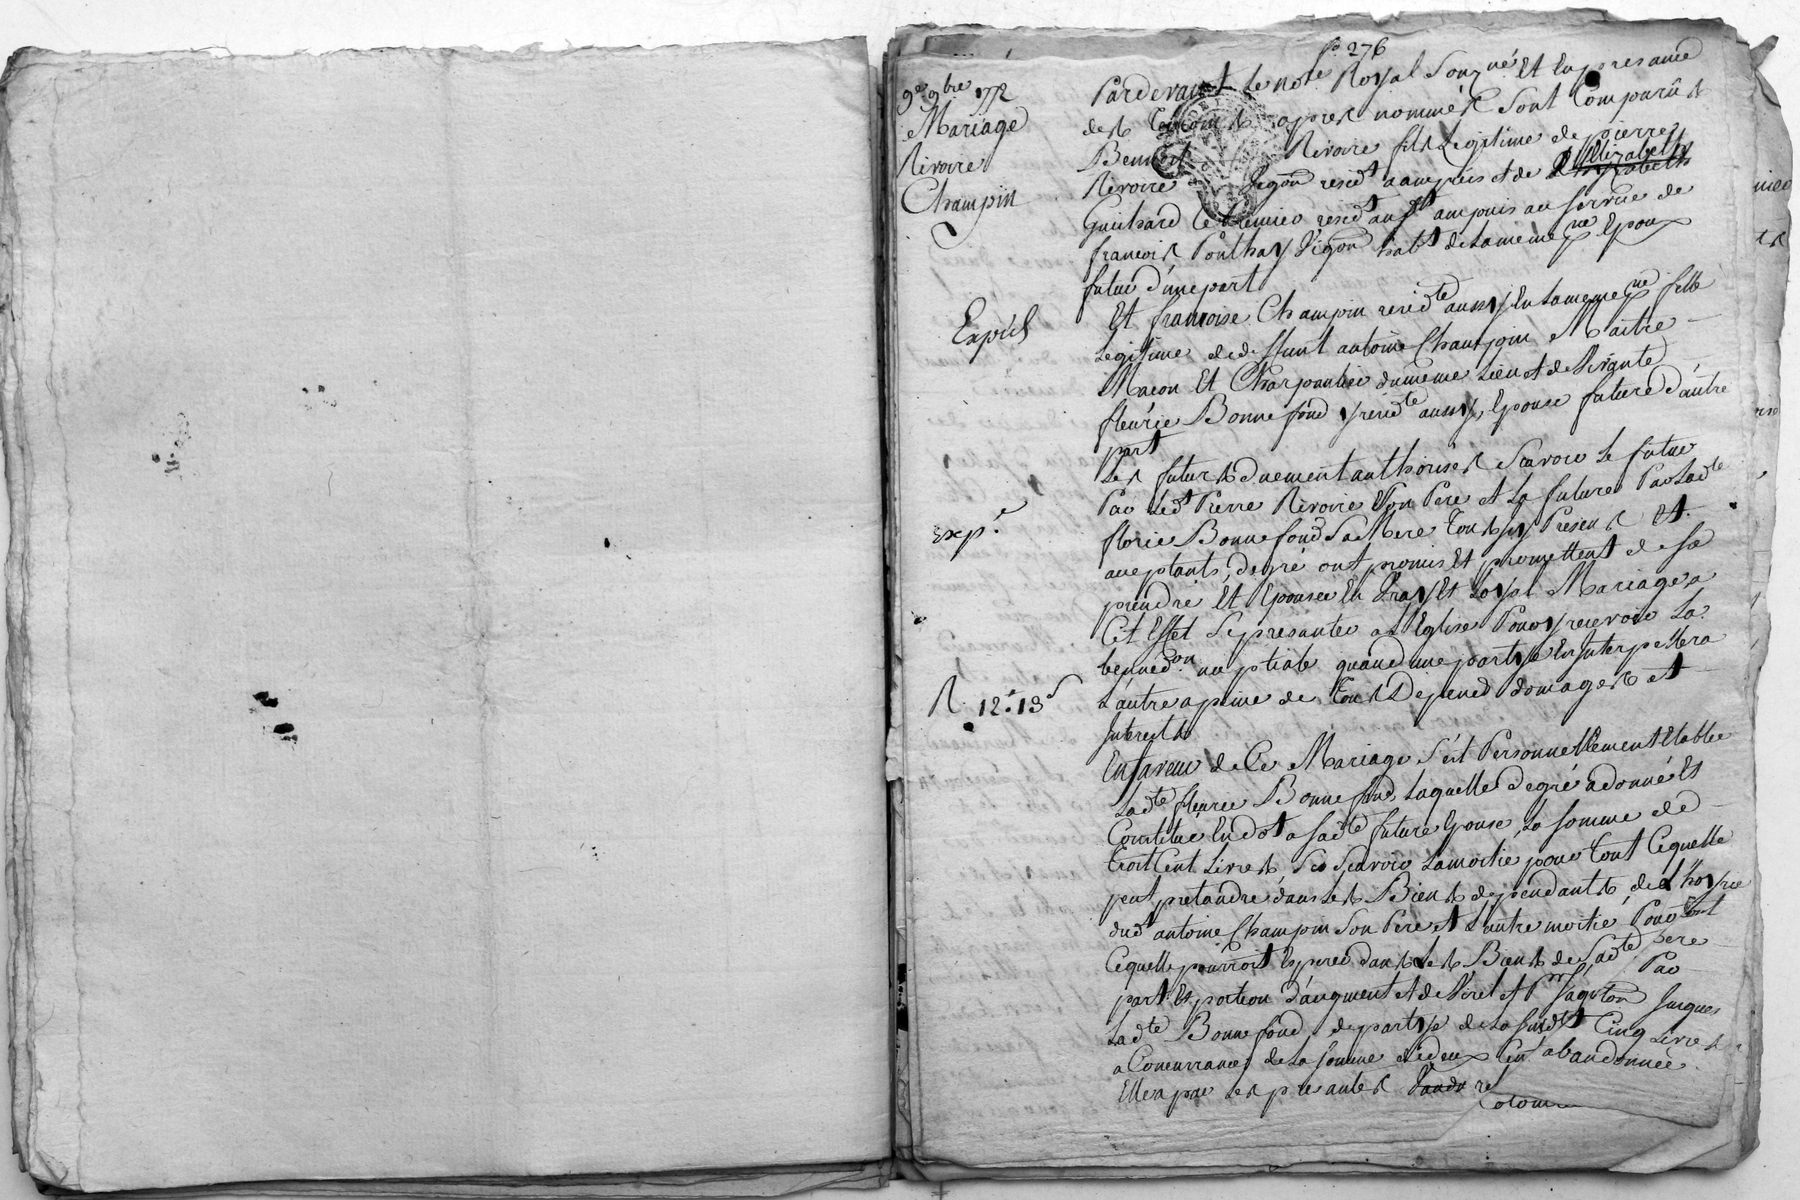 f° 276
9e 9bre 1772
Mariage
Rivoire
Champin
Expéd
Exp.e
R. 12.s 13.s
Pardevant le note Royal Souzné Et En presance
des temoins apres nommés Sont Comparûs
Benoit Rivoire fils Legitime de pierre
Rivoire Vigon residt a ampuis et de Elizabeth
Guichard le premier residt audt ampuis au service de
francois Ponthay Vigon habt de la meme pne Epoux
futur d'une part
Et francoise Champin residte aussy En la meme pne fille
Legitime de deffunt antoine Champin Maitre
Macon Et Charpantier du meme Lieu et de Vivante
fleurie Bonnefond y residte aussy, Epouse future d'autre
part
Les futurs duement authorisés Scavoir Le futur
Par Ledt Pierre Rivoire Son Pere et La future Par Ladte
florie Bonnefond Sa Mere tous icy Presens et
aceptants, de gré ont promis Et promettent de se
prendre Et Epouser En Vray Et Loyal Mariage, a
Cet Effet Se presanter a L'Eglise Pour y recevoir La
benned.on nuptiale quand une partye En Interpellera
L'autre a peine de tous Depend domages et
Interests
En faveur de Ce Mariage S'est Personnellement Etablie
Ladte fleurie Bonnefond, Laquelle de gré a donné Et
Constitué En dot a Sadte future Epouse, La somme de
trois Cent Livres, Scavoir La moitié pour tout Ce quelle
peut pretandre dans Les Biens dependants de L'hoyrie
dudt antoine Champin Son Pere et L'autre moitié Pour tout
Ce quelle pourroit Esperer dans Les Biens de Sadte Mere
part Et portion d'augment et de Virel et Par
Ladte Bonnefond de partye de La susdt Cinq Livres
a Concurrance de La somme de deux Cent abandonnée
Elle a par Les presantes